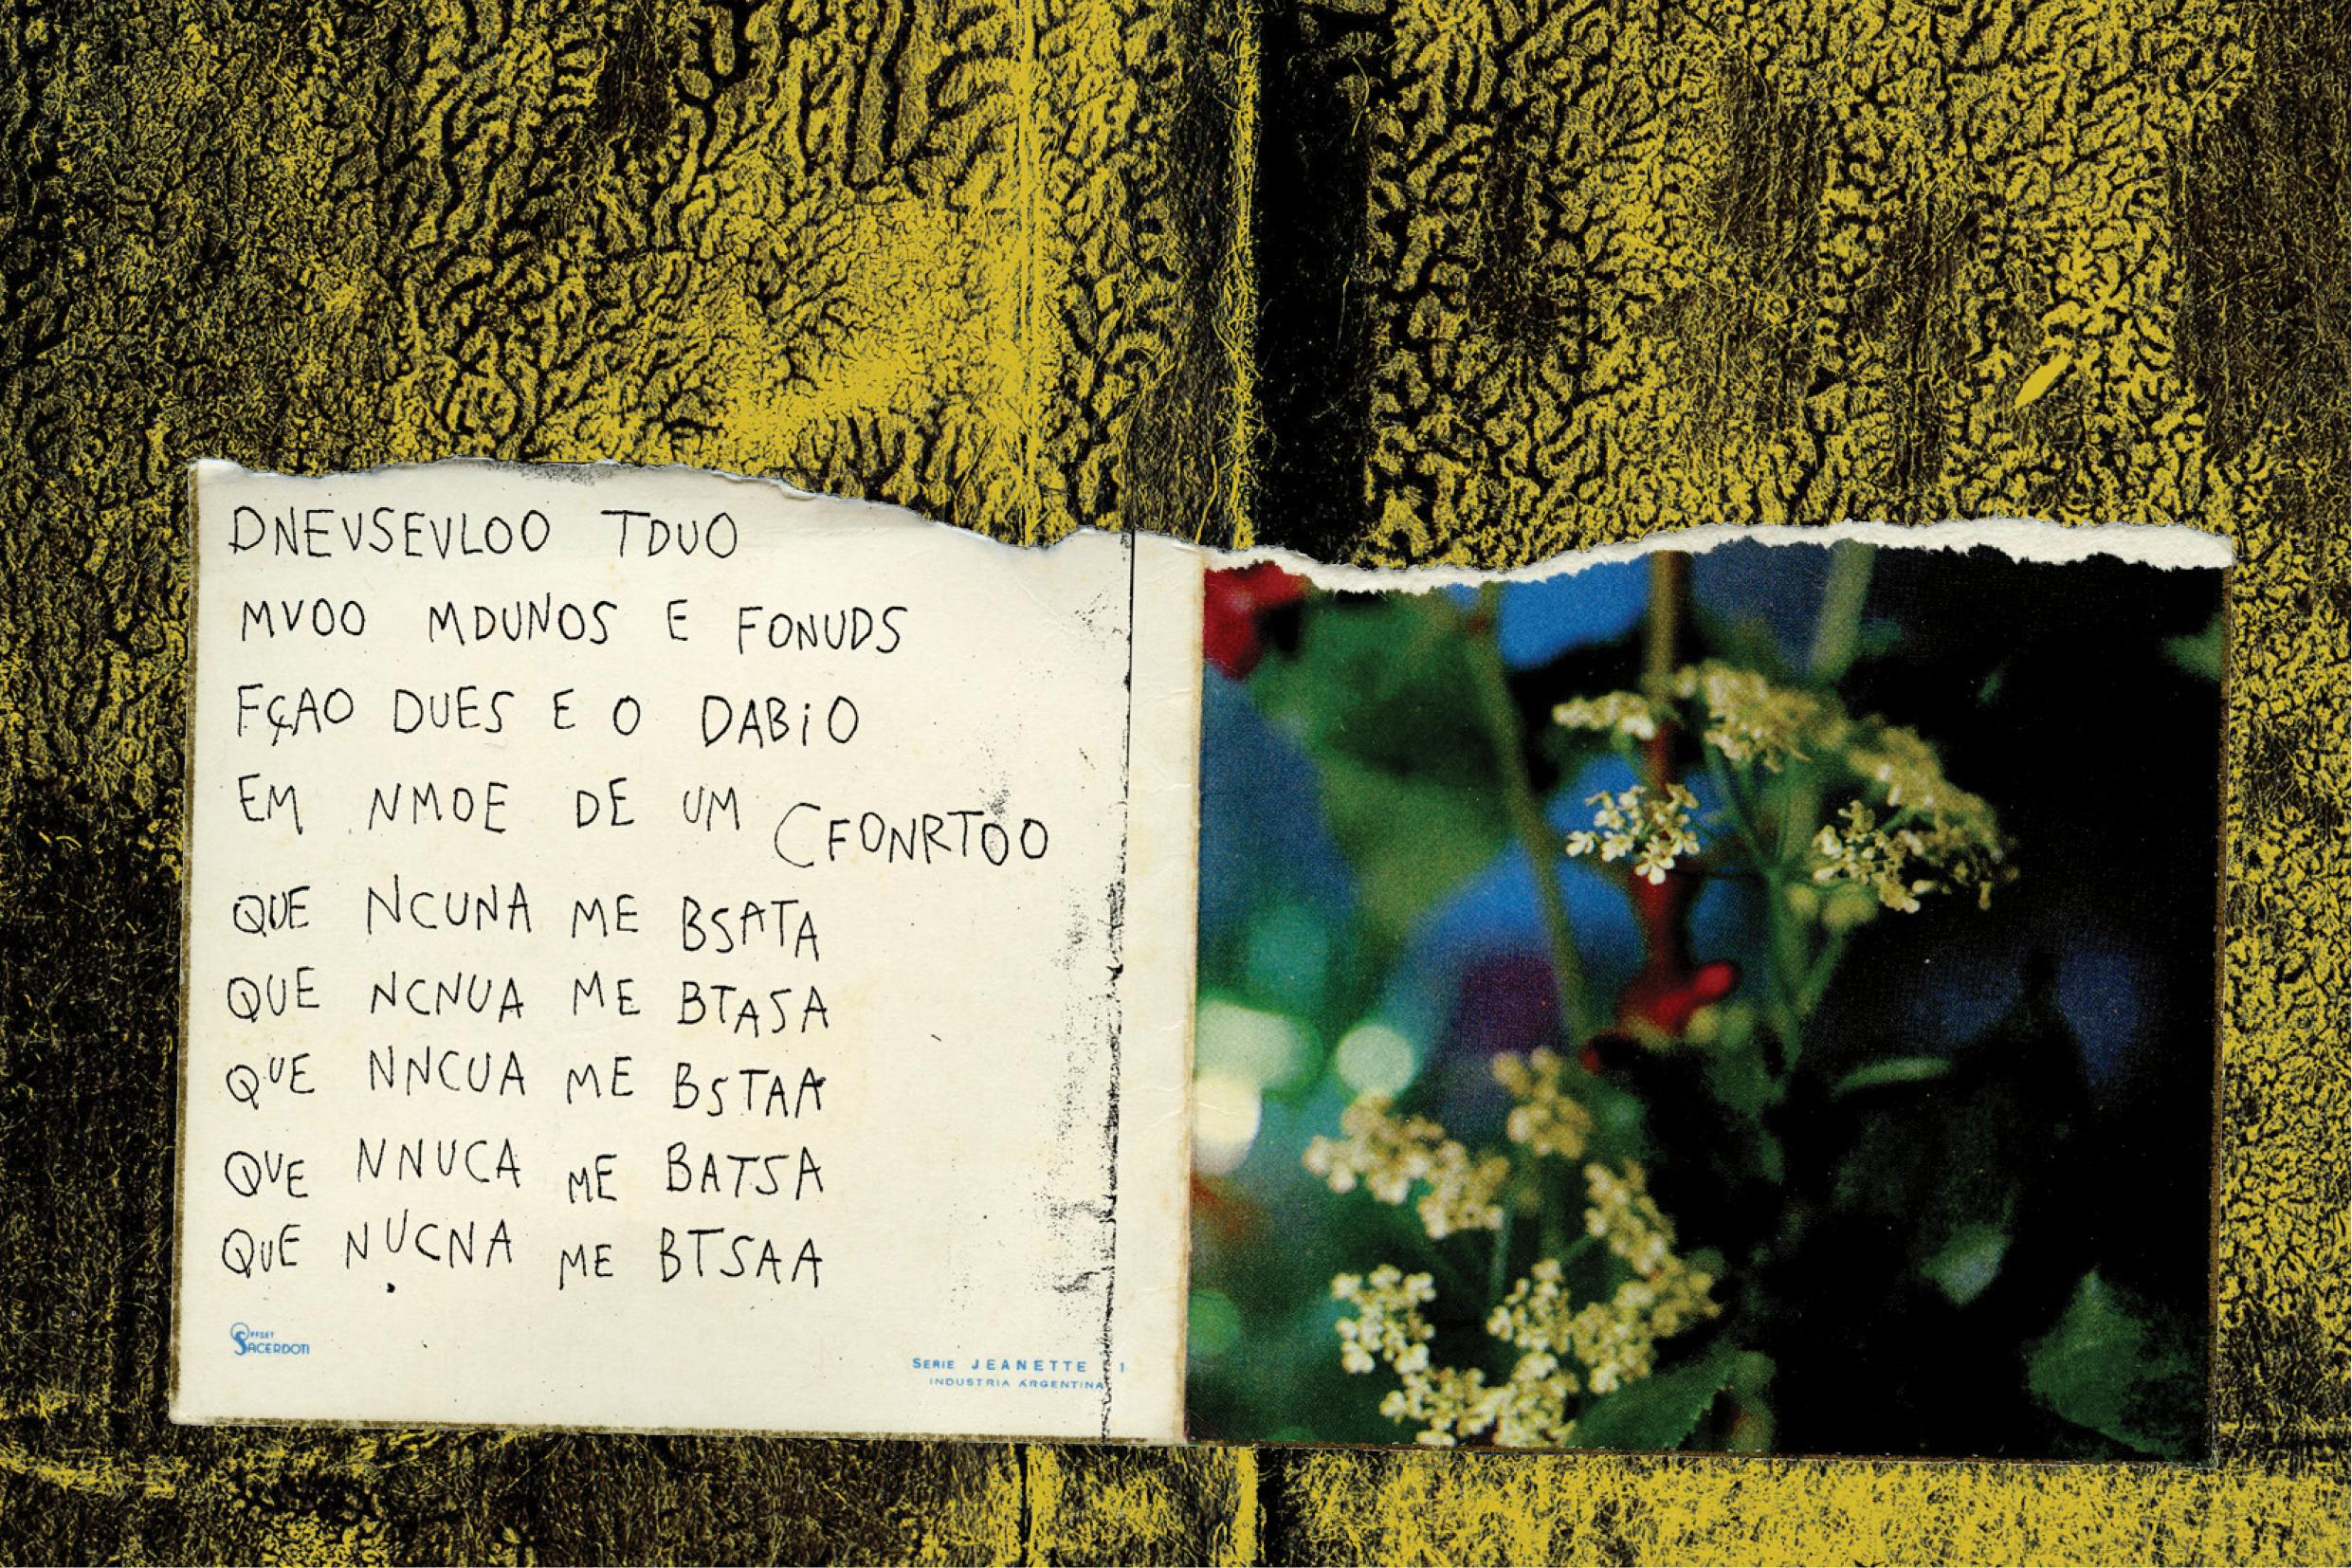 DNEVSEVLOO TDUO
MVOO MDUNOS E FONUDS
FÇAO DUES E O DABiO
EM NMOE DE UM CFONRTOO
QUE NCUNA ME BSATA
QUE NCNUA ME BTASA
QUE NNCUA ME BSTAA
QUE NNUCA ME BATSA
QUE NUCNA ME BTSAA
OFFSET
SACERDOTI
SERIE JEANETTE 1
INDUSTRIA ARGENTINA